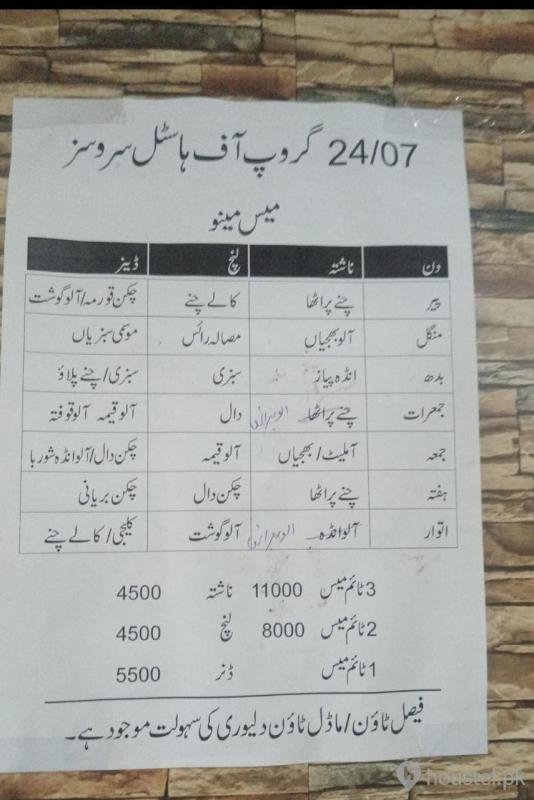 24/07 گروپ آف ہاسٹل سروسز
میس مینو
دن ناشتہ لنچ ڈینز
پیر چنے پراٹھا کالے چنے چکن قورمہ/آلو گوشت
منگل آلو بھجیاں مصالہ رائس موسمی سبزیاں
بدھ انڈہ پیاز سبزی سبزی/چنے پلاؤ
جمعرات چنے پراٹھا دال آلو قیمہ آلو کوفتہ
جمعہ آملیٹ/بھجیاں آلو قیمہ چکن دال/آلو انڈہ شوربا
ہفتہ چنے پراٹھا چکن دال چکن بریانی
اتوار آلو انڈہ آلو گوشت کلیجی/کالے چنے
3 ٹائم میس 11000 ناشتہ 4500
2 ٹائم میس 8000 لنچ 4500
1 ٹائم میس ڈنر 5500
فیصل ٹاؤن/ماڈل ٹاؤن دلیوری کی سہولت موجود ہے۔
houstel.pk